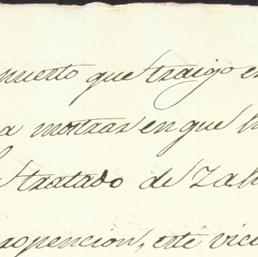 muerto que traigo e
a mostrar en que h
tratado de Zah
ropencion, este vice